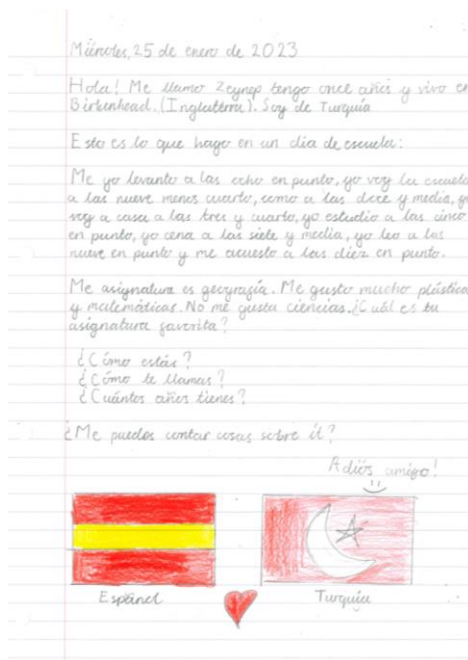 Miércoles, 25 de enero de 2023
Hola! Me llamo Zeynep tengo once años y vivo en
Birkenhead. (Inglaterra). Soy de Turquía
Esto es lo que hago en un dia de escuela:
Me yo levanto a las ocho en punto, yo voy la escuela
a las nueve menos cuarto, como a las doce y media, yo
voy a casa a las tres y cuarto, yo estudio a las cinco
en punto, yo cena a las siete y media, yo leo a las
nueve en punto y me acuesto a las diez en punto.
Me asignatura es geografía. Me gusta mucho plástica
y matemáticas. No me gusta ciencias. ¿Cuál es tu
asignatura favorita?
¿Cómo estás?
¿Cómo te llamas?
¿Cuántos años tienes?
¿Me puedes contar cosas sobre
Adiós amigo!
Turquía